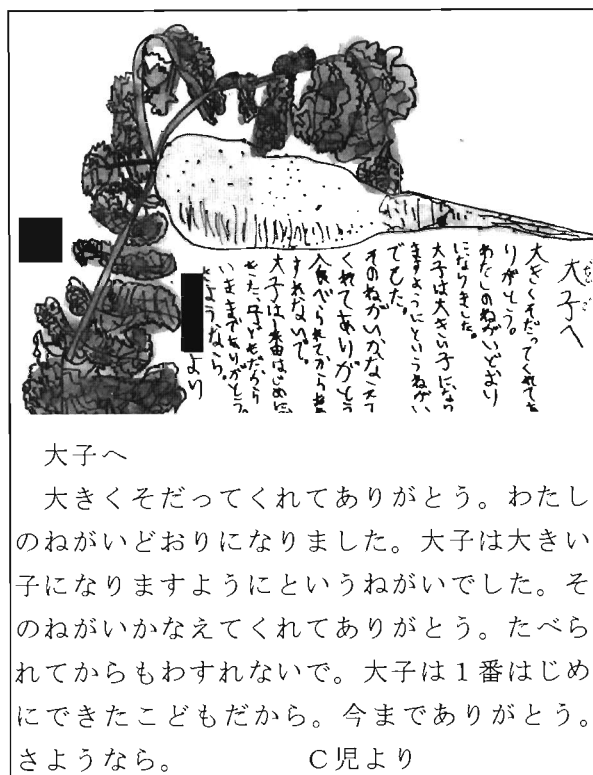 大子へ
大きくそだってくれてあ
りがとう。
わたしのねがいどおり
になりました。
大子は大きい子になり
ますようにというねがい
でした。
そのねがいかなえて
くれてありがとう
すれないで。
大子は1番はじめに
いままでありがとう。
さようなら。
より
大子へ
大きくそだってくれてありがとう。わたし
のねがいどおりになりました。大子は大きい
子になりますようにというねがいでした。そ
のねがいかなえてくれてありがとう。たべら
れてからもわすれないで。大子は1番はじめ
にできたこどもだから。今までありがとう。
さようなら。 C児より